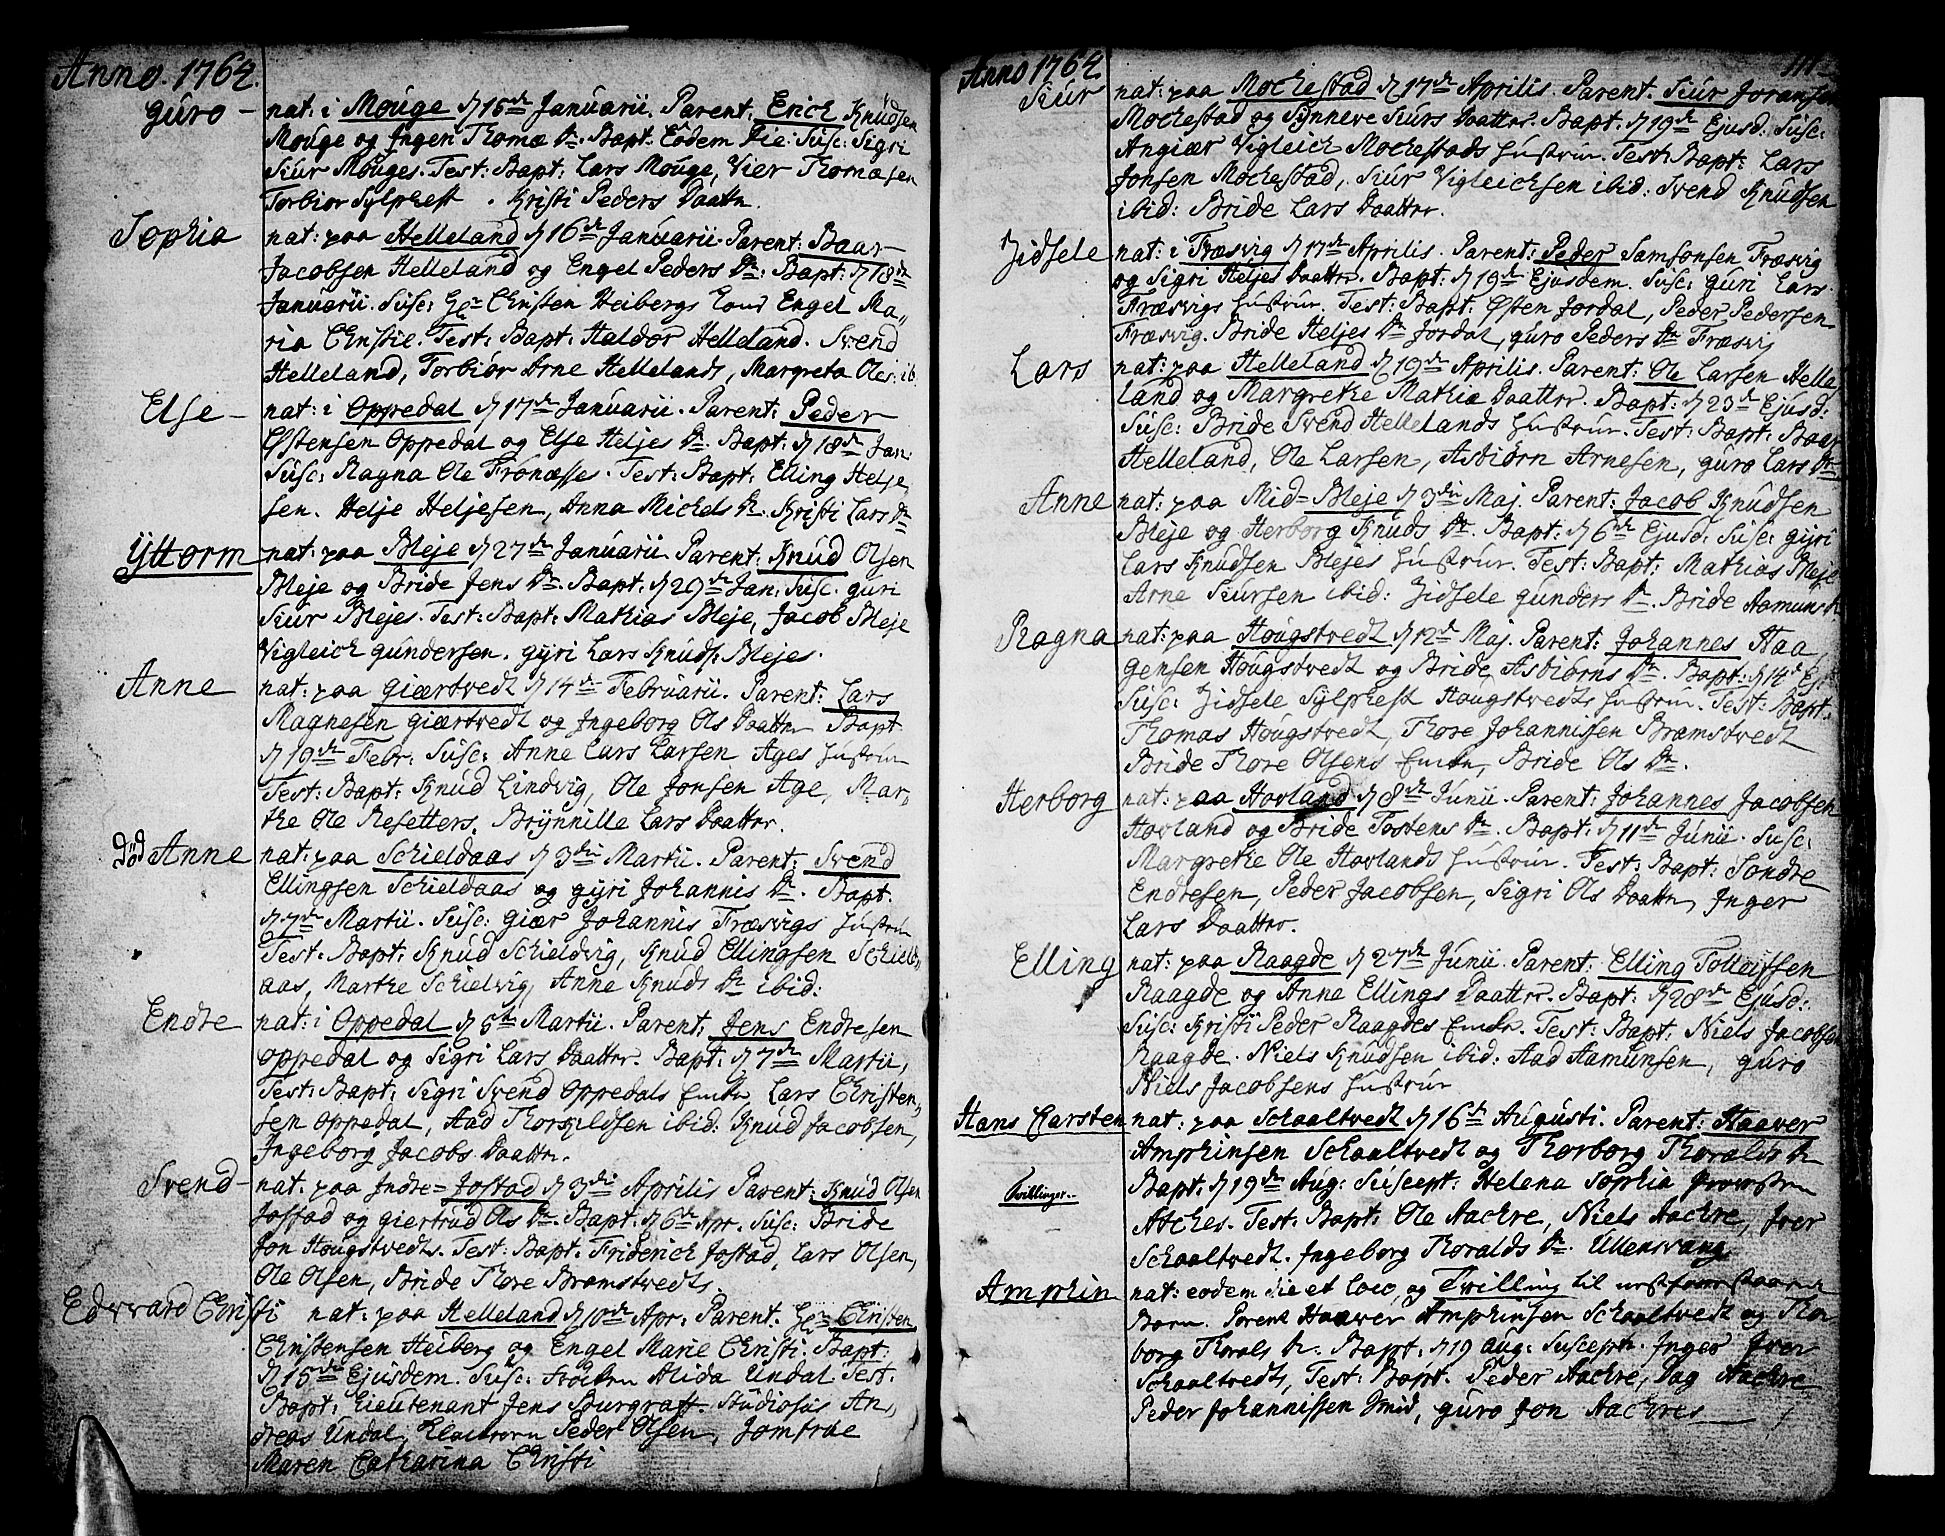 Anno. 1764.
Guro - nat: i Mouge d 16de Januarii. Parent: Erich Knudsen
Mouge og Ingen Thomæ Dr. Bapt: Eodem Die: Susc: Sigri
Siur Mouges. Test: Bapt: Lars Mouge, Vier Thomæsen
Torbior Sylphest. Kristi Peders Daattr.
Sophia nat: paa Helleland d 16de Januarii. Parent: Baar
Jacobsen Helleland og Engel Peders Dr: Bapt: d 18de
Januarii. Susc: Hr Christen Heibergs Engel Ma,,
ria Christie. Test: Bapt: Haldor Helleland. Svend
Helleland, Torbiør Arne Hellelands, Margreta Ols: ib.
Else - nat: i Oppedal d 17de Januarii. Parent: Peder
Østensen Oppedal og Else Heljes Dr. Bapt: d 18de Jan:
Susc: Ragna Ole Fronæsse. Test: Bapt: Elling Helje,
sen. Helje Heljesen, Anna Michels Dr. Kristi Lars Dr
Yttorm nat: paa Bleje d 27de Januarii. Parent: Knud Olsen
Bleje og Bride Jens Dr. Bapt: d 29de Jan: Susc. Guri
Siur Blejes. Test: Bapt: Mathias Bleje, Jacob Bleje
Vigleich Gundersen. Gyri Lars Knuds: Blejes.
Anne nat: paa Giærtvedt d 14de Februarii. Parent: Lars
Magnesen Giærtvedt og Ingeborg Ols Daattr Bapt
d 19de Febr: Susc: Anne Lars Larsen Ages Hustrue
Test: Bapt: Knud Lindvig, Ole Jonsen Age, Mar,
the Ole Resetters. Brynnille Lars Daattr.
Død Anne nat: paa Schieldaas d 3die Martii. Parent: Svend
Ellingsen Schieldaas og Gyri Johannis Dr. Bapt.
d 7de Martii. Susc: Giær Johannis Træsvigs Hustrue
Test: Bapt: Knud Schieldvig, Knud Ellingsen Schield,
aas, Marthe Schielvig, Anne Knuds Dr ibid:
Endre nat: i Oppedal d 5te Martii. Parent: Jens Endresen
Oppedal og Sigri Lars Daattr. Bapt: d 7de Martii,
Test: Bapt: Sigri Svend Oppedals Enke, Lars Christen,,
sen Oppedal, Aad Thorkildsen ibid: Knud Jacobsen,
Ingeborg Jacobs Daattr.
Svend - nat: paa Indre=Jostad d 3die Aprilis Parent: Knud Olsen
Jostad og Giertrud Ols Dr. Bapt: d 6te Apr. Susc: Bride
Jon Hougstvedts. Test: Bapt. Friderich Jostad, Lars Olsen,
Ole Olsen, Bride Thore Bramstvedts.
Edvvard Christi nat: paa Helleland d 10de Apr: Parent: Hr Christen
Christensen Heiberg og Engel Marie Christi. Bapt:
d 15de Ejusdem. Susc: Alida Undal Test:
Bapt: Lieutenant Jens Burgraff Studiosus An,,
dreas Undal, Peder Olsen, Jomfrue
Maren Catharina Christi
Anno 1764. 111
Siur nat: paa Mochestad d 17de Aprilis. Parent. Siur Joransen
Mochestad og Synneve Siurs Daattr. Bapt: d 19de Ejusd. Susc:
Angiær Vigleich Mochestads Hustrue. Test: Bapt: Lars
Jonsen Mochestad, Siur Vigleichsen ibid: Svend Knudsen
ibid: Bride Lars Daattr.
Zidsele nat: i Træsvig d 17de Aprilis. Parent: Peder Samsonsen Træsvig
og Sigri Heljes Daattr. Bapt: d 19de Ejusdem. Susc: Guri Lars
Træsvigs Hustrue. Test: Bapt: Østen Jordal, Peder Pedersen
Træsvig. Bride Heljes Dr Jordal, Guro Peders Dr Træsvig
Lars nat: paa Helleland d 19de Aprilis. Parent: Ole Larsen Helle
land og Margrethe Mathiæ Daattr. Bapt: d 23de Ejusd:
Susc: Bride Svend Hellelands Hustrue. Test: Bapt: Baar
Helleland, Ole Larsen, Asbiørn Arnesen, Guro Lars Dr
Anne nat: paa Mid=Bleje d 3die Maj. Parent: Jacob Knudsen
Bleje og Herborg Knuds Dr. Bapt: d 6te Ejusd: Susc: Gyri
Lars Knudsen Blejes Hustrue. Test: Bapt: Mathias Bleje
Arne Siursen ibid: Zidsele Gunders Dr. Bride Aamuns Dr
Ragna nat: paa Hougstvedt d 12te Maj. Parent: Johannes Haa,
gensen Hougstvedt og Bride Asbiørns Dr. Bapt: d 14de Ej:
Susc: Zidsele Sylphest Hougstvedts Hustrue. Test: Bapt:
Thomas Hougstvedt, Thore Johannissen Bramstvedt
Bride Thore Olsens Enke, Bride Ols Dr.
Herborg nat: paa Hovland d 8de Junii. Parent: Johannes Jacobsen
Hovland og Bride Tostens Dr. Bapt: d 11de Junii. Susc:
Margrethe Ole Hovlands Hustrue. Test: Bapt: Sondre
Endresen, Peder Jacobsen, Sigri Ols Daattr, Inger
Lars Daattr.
Elling nat: paa Raagde d 27de Junii. Parent: Elling Tolleifsen
Raagde og Anne Ellings Daattr. Bapt: d 28de Ejusd:
Susc: Kristi Peder Raagdes Enke. Test: Bapt: Niels Jacobsen
Raagde. Niels Knudsen ibid: Aad Aamunsen, Guro
Niels Jacobsens Hustrue
Hans Carsten nat: paa Schaaltvedt d 16de Augusti. Parent: Haaver
Amphinsen Schaaltvedt og Thorborg Thoralds Dr
Tvillinger. Bapt: d 19de Aug: Suscept: Helena Sophia
Atches. Test: Bapt: Ole Aachre, Niels Aachre, Iver
Schaaltvedt. Ingeborg Thoralds Dr. Ullensvang
Amphin nat: eodem die et loco, og Tvilling til
Barn. Parent Haaver Amphinsen Schaaltvedt og Thor
borg Thorals Dr. Bapt: d 19 Aug: Suscept: Inger Iver
Schaaltvedts, Test: Bapt. Peder Aachre, Dag Aachre
Peder Johannissen Imid, Guro Jon Aachres